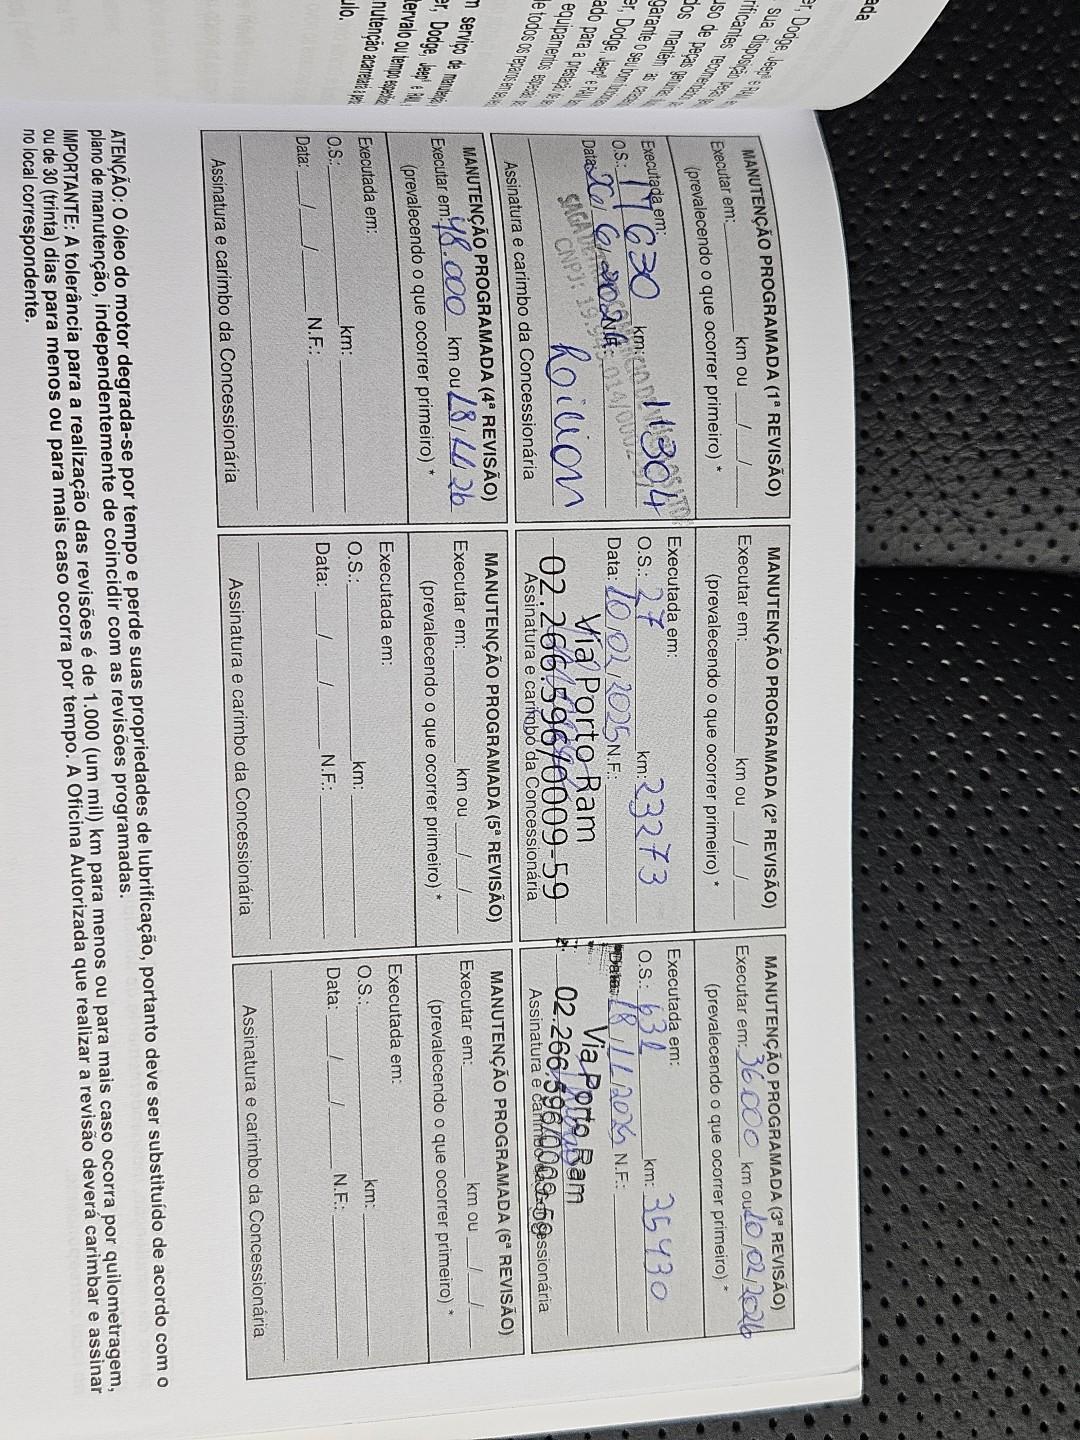 MANUTENÇÃO PROGRAMADA (1ª REVISÃO)
Executar em: km ou / /
(prevalecendo o que ocorrer primeiro) *
Executada em:
O.S.: 17630 km: 11304
Data: 26/6/2024 N.F.:
CNPJ:
Assinatura e carimbo da Concessionária
MANUTENÇÃO PROGRAMADA (2ª REVISÃO)
Executar em: km ou / /
(prevalecendo o que ocorrer primeiro) *
Executada em:
O.S.: 27 km: 23273
Data: 10/02/2025 N.F.:
Via Porto Ram
02.266.596/0009-59
Assinatura e carimbo da Concessionária
MANUTENÇÃO PROGRAMADA (3ª REVISÃO)
Executar em: 36000 km ou 10/02/2026
(prevalecendo o que ocorrer primeiro) *
Executada em:
O.S.: 631 km: 35430
Data: 18/11/2025 N.F.:
Via Porto Ram
02.266.596/0009-59
Assinatura e carimbo da Concessionária
MANUTENÇÃO PROGRAMADA (4ª REVISÃO)
Executar em: 48.000 km ou 18/11/26
(prevalecendo o que ocorrer primeiro) *
Executada em:
O.S.: km:
Data: / / N.F.:
Assinatura e carimbo da Concessionária
MANUTENÇÃO PROGRAMADA (5ª REVISÃO)
Executar em: km ou / /
(prevalecendo o que ocorrer primeiro) *
Executada em:
O.S.: km:
Data: / / N.F.:
Assinatura e carimbo da Concessionária
MANUTENÇÃO PROGRAMADA (6ª REVISÃO)
Executar em: km ou / /
(prevalecendo o que ocorrer primeiro) *
Executada em:
O.S.: km:
Data: / / N.F.:
Assinatura e carimbo da Concessionária
ATENÇÃO: O óleo do motor degrada-se por tempo e perde suas propriedades de lubrificação, portanto deve ser substituído de acordo com o
plano de manutenção, independentemente de coincidir com as revisões programadas.
IMPORTANTE: A tolerância para a realização das revisões é de 1.000 (um mil) km para menos ou para mais caso ocorra por quilometragem,
ou de 30 (trinta) dias para menos ou para mais caso ocorra por tempo. A Oficina Autorizada que realizar a revisão deverá carimbar e assinar
no local correspondente.